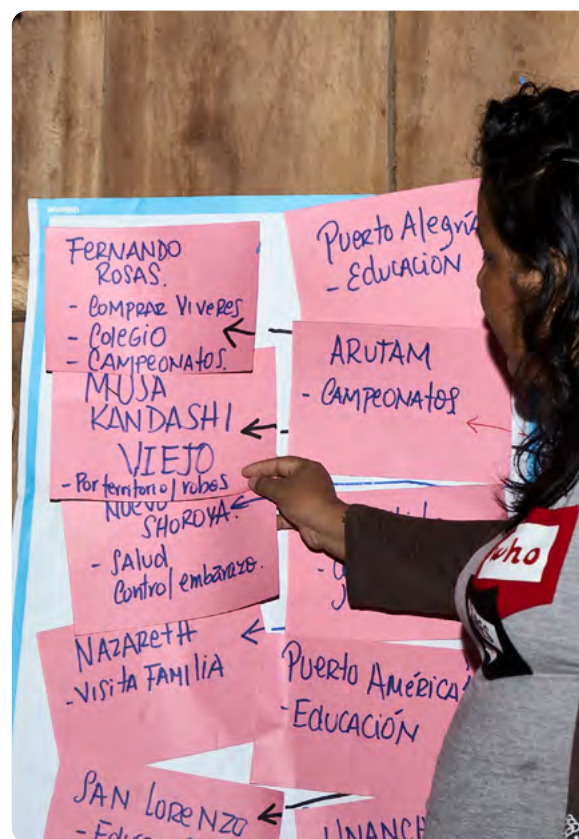 FERNANDO
ROSAS.
- COMPRAR VIVERES
- COLEGIO
- CAMPEONATOS.
MUSA
KANDASHI
VIEJO
- Por territorio/robos
NUEVO
SHOROYA.
- SALUD
Control embarazo.
NAZARETH
- VISITA FAMILIA
SAN LORENZO
Puerto Alegría
- EDUCACIÓN
ARUTAM
- CAMPEONATOS
Puerto América
- EDUCACIÓN